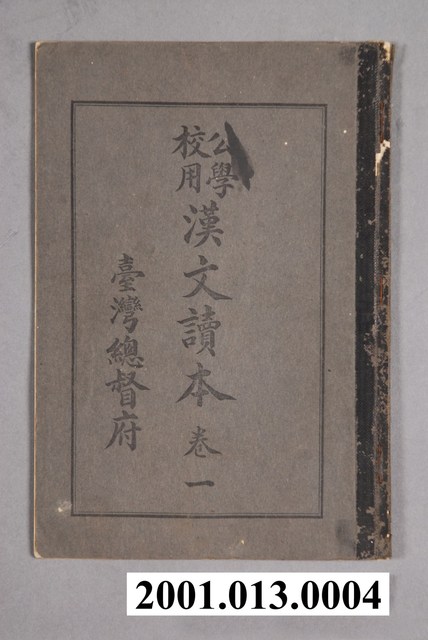 公學校用漢文讀本卷一
臺灣總督府
2001.013.0004